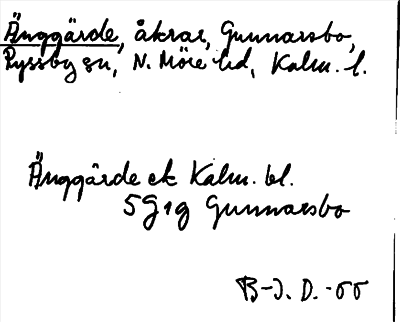 Änggärde, åkrar, Gunnarsbo,
Ryssby sn, N. Möre hd, Kalm. l.
Änggärde ek Kalm. bl.
5G1g Gunnarsbo
B-J. D. -55